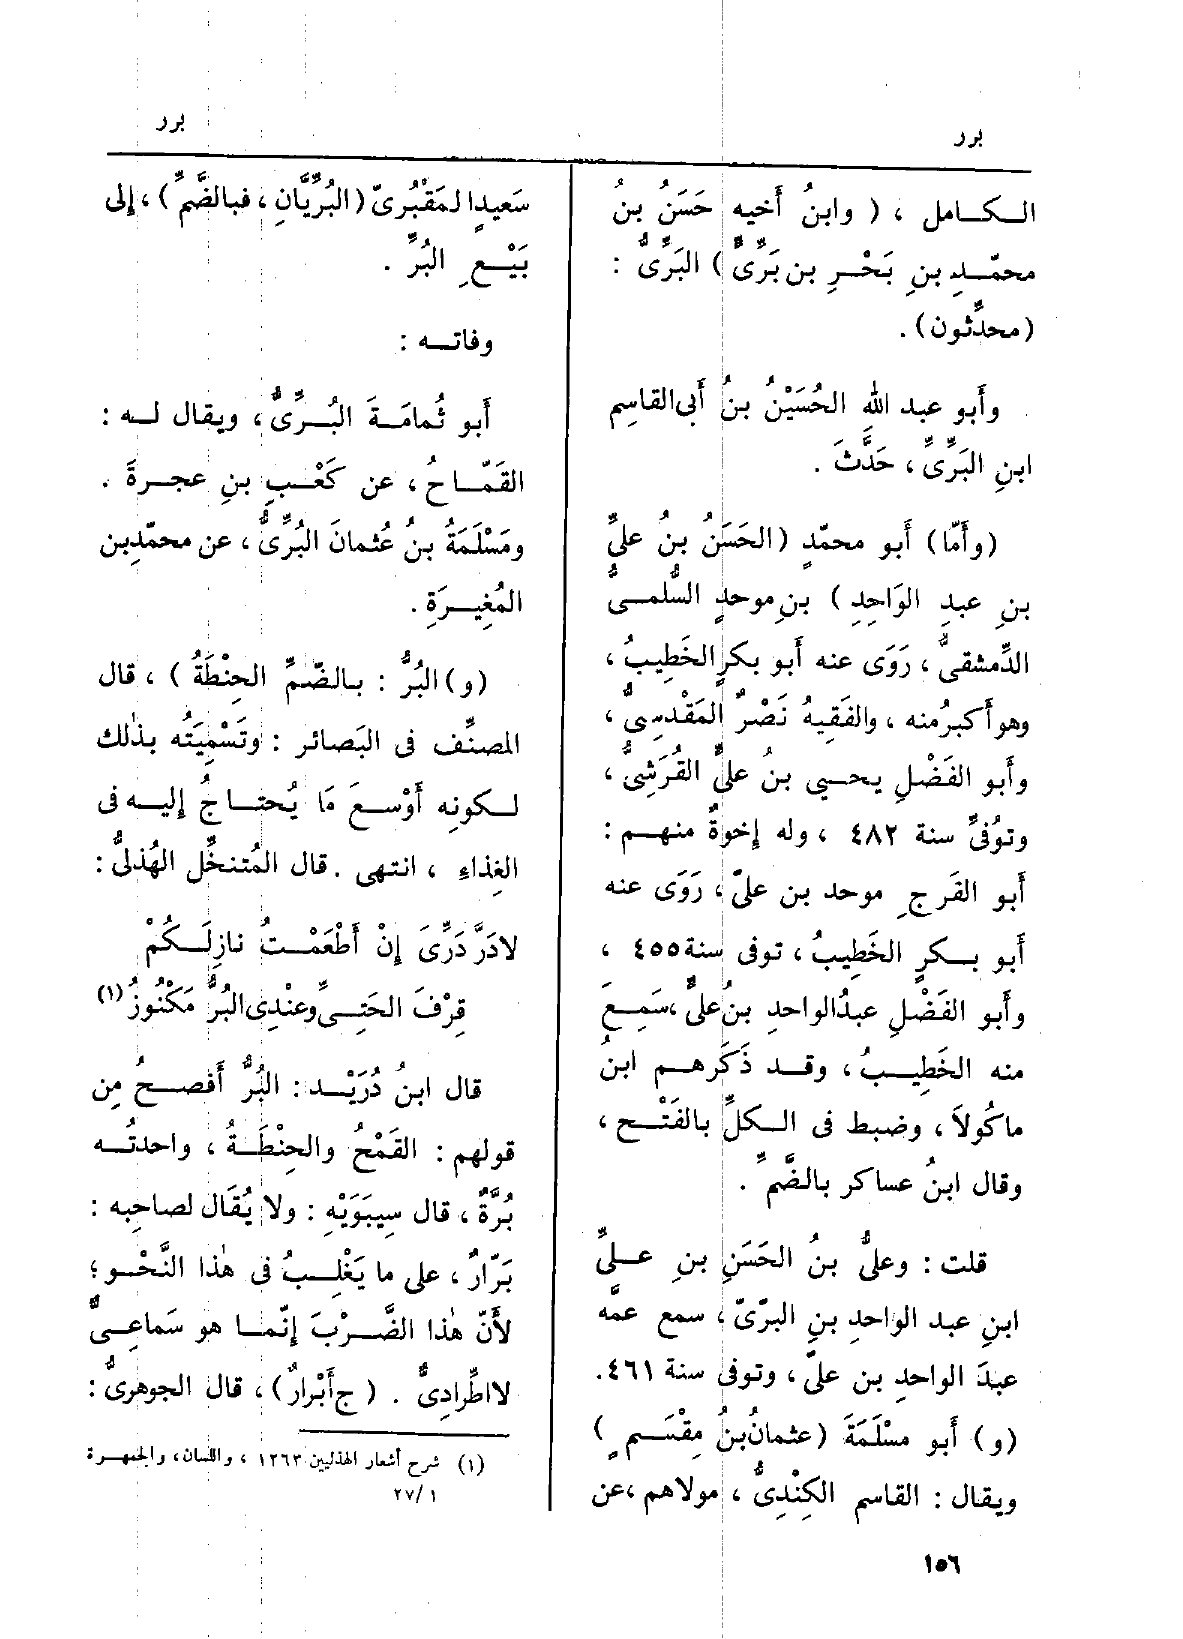 برر
برر
الكامل ، ( وابنُ أخيه حَسَنُ بنُ
محمّد بنِ بَحْرِ بن بَرِّىٍّ ) البَرِّىُّ :
(محدِّثون) .
وأَبو عبد اللهِ الحُسَيْنُ بنُ أَبى القاسِم
ابنِ البَرِّىِّ ، حَدَّثَ .
(وأَمّا) أَبو محمّدٍ (الحَسَنُ بنُ علىِّ
بنِ عبدِ الوَاحِدِ ) بنِ موحدٍ السُّلَمىُّ
الدِّمشقىُّ ، رَوَى عنه أَبو بكرٍ الخَطِيبُ ،
وهو أَكبرُ منه ، والفَقِيهُ نَصْرٌ المَقْدِسِىُّ ،
وأَبو الفَضْلِ يحيى بنُ علىٍّ القُرَشِىُّ ،
وتُوفِّىَ سنة ٤٨٢ ، وله إِخوةٌ منهم :
أَبو الفَرجِ موحد بن علىّ ، رَوَى عنه
أَبو بكرٍ الخَطِيبُ ، توفى سنة ٤٥٥ ،
وأَبو الفَضْلِ عبدُ الواحدِ بنُ علىٍّ ، سَمِعَ
منه الخَطِيبُ ، وقد ذَكَرهم ابنُ
ماكُولاَ ، وضبط فى الكلِّ بالفَتْح ،
وقال ابنُ عساكر بالضَّمِّ .
قلت : وعلىُّ بنُ الحَسَنِ بنِ علىِّ
ابنِ عبد الواحدِ بنِ البرّىّ ، سمع عمَّه
عبدَ الواحدِ بن علىّ ، وتوفى سنة ٤٦١ .
(و) أَبو مَسْلَمَةَ (عثمانُ بنُ مِقْسَمٍ )
ويقال : القاسم الكِنْدِىُّ ، مولاهم ، عن
سَعِيدٍ المَقْبُرىّ (البُرِّيَّانِ ، فبالضَّمِّ ) ، إِلى
بَيْعِ البُرِّ .
وفاته :
أَبو ثُمامَةَ البُرِّىُّ ، ويقال له :
القَمّاحُ ، عن كَعْبِ بنِ عجرةَ .
ومَسْلَمَةُ بنُ عُثمانَ البُرِّىُّ ، عن محمّد بن
المُغِيرَةِ .
(و) البُرُّ : بالضّمِّ الحِنْطَةُ ) ، قال
المصنِّف فى البَصائر : وتَسْمِيَتُه بذٰلك
لكونِه أَوْسعَ مَا يُحتاجُ إِليه فى
الغِذاءِ ، انتهى . قال المُتنخِّل الهُذلىُّ :
لا دَرَّ دَرِّىَ إِنْ أَطْعَمْتُ نازِلَكُمْ
قِرْفَ الحَتِىِّ وعنْدِى البُرُّ مَكْنُوزُ (١)
قال ابنُ دُرَيْد : البُرُّ أَفصحُ مِن
قولهم : القَمْحُ والحِنْطَةُ ، واحدتُه
بُرَّةٌ ، قال سِيبَوَيْهِ : ولا يُقَال لصاحِبِه :
بَرّارٌ ، على ما يَغْلِبُ فى هٰذا النَّحْوِ ؛
لأَنّ هٰذا الضَّرْبَ إِنّما هو سَماعِىٌّ
لااطِّرادِىٌّ . ( ج أَبْرارٌ ) ، قال الجوهرىُّ :
(١) شرح أشعار الهذليين ١٢٦٣ ، واللسان ، والجمهرة
١ /٢٧
١٥٦